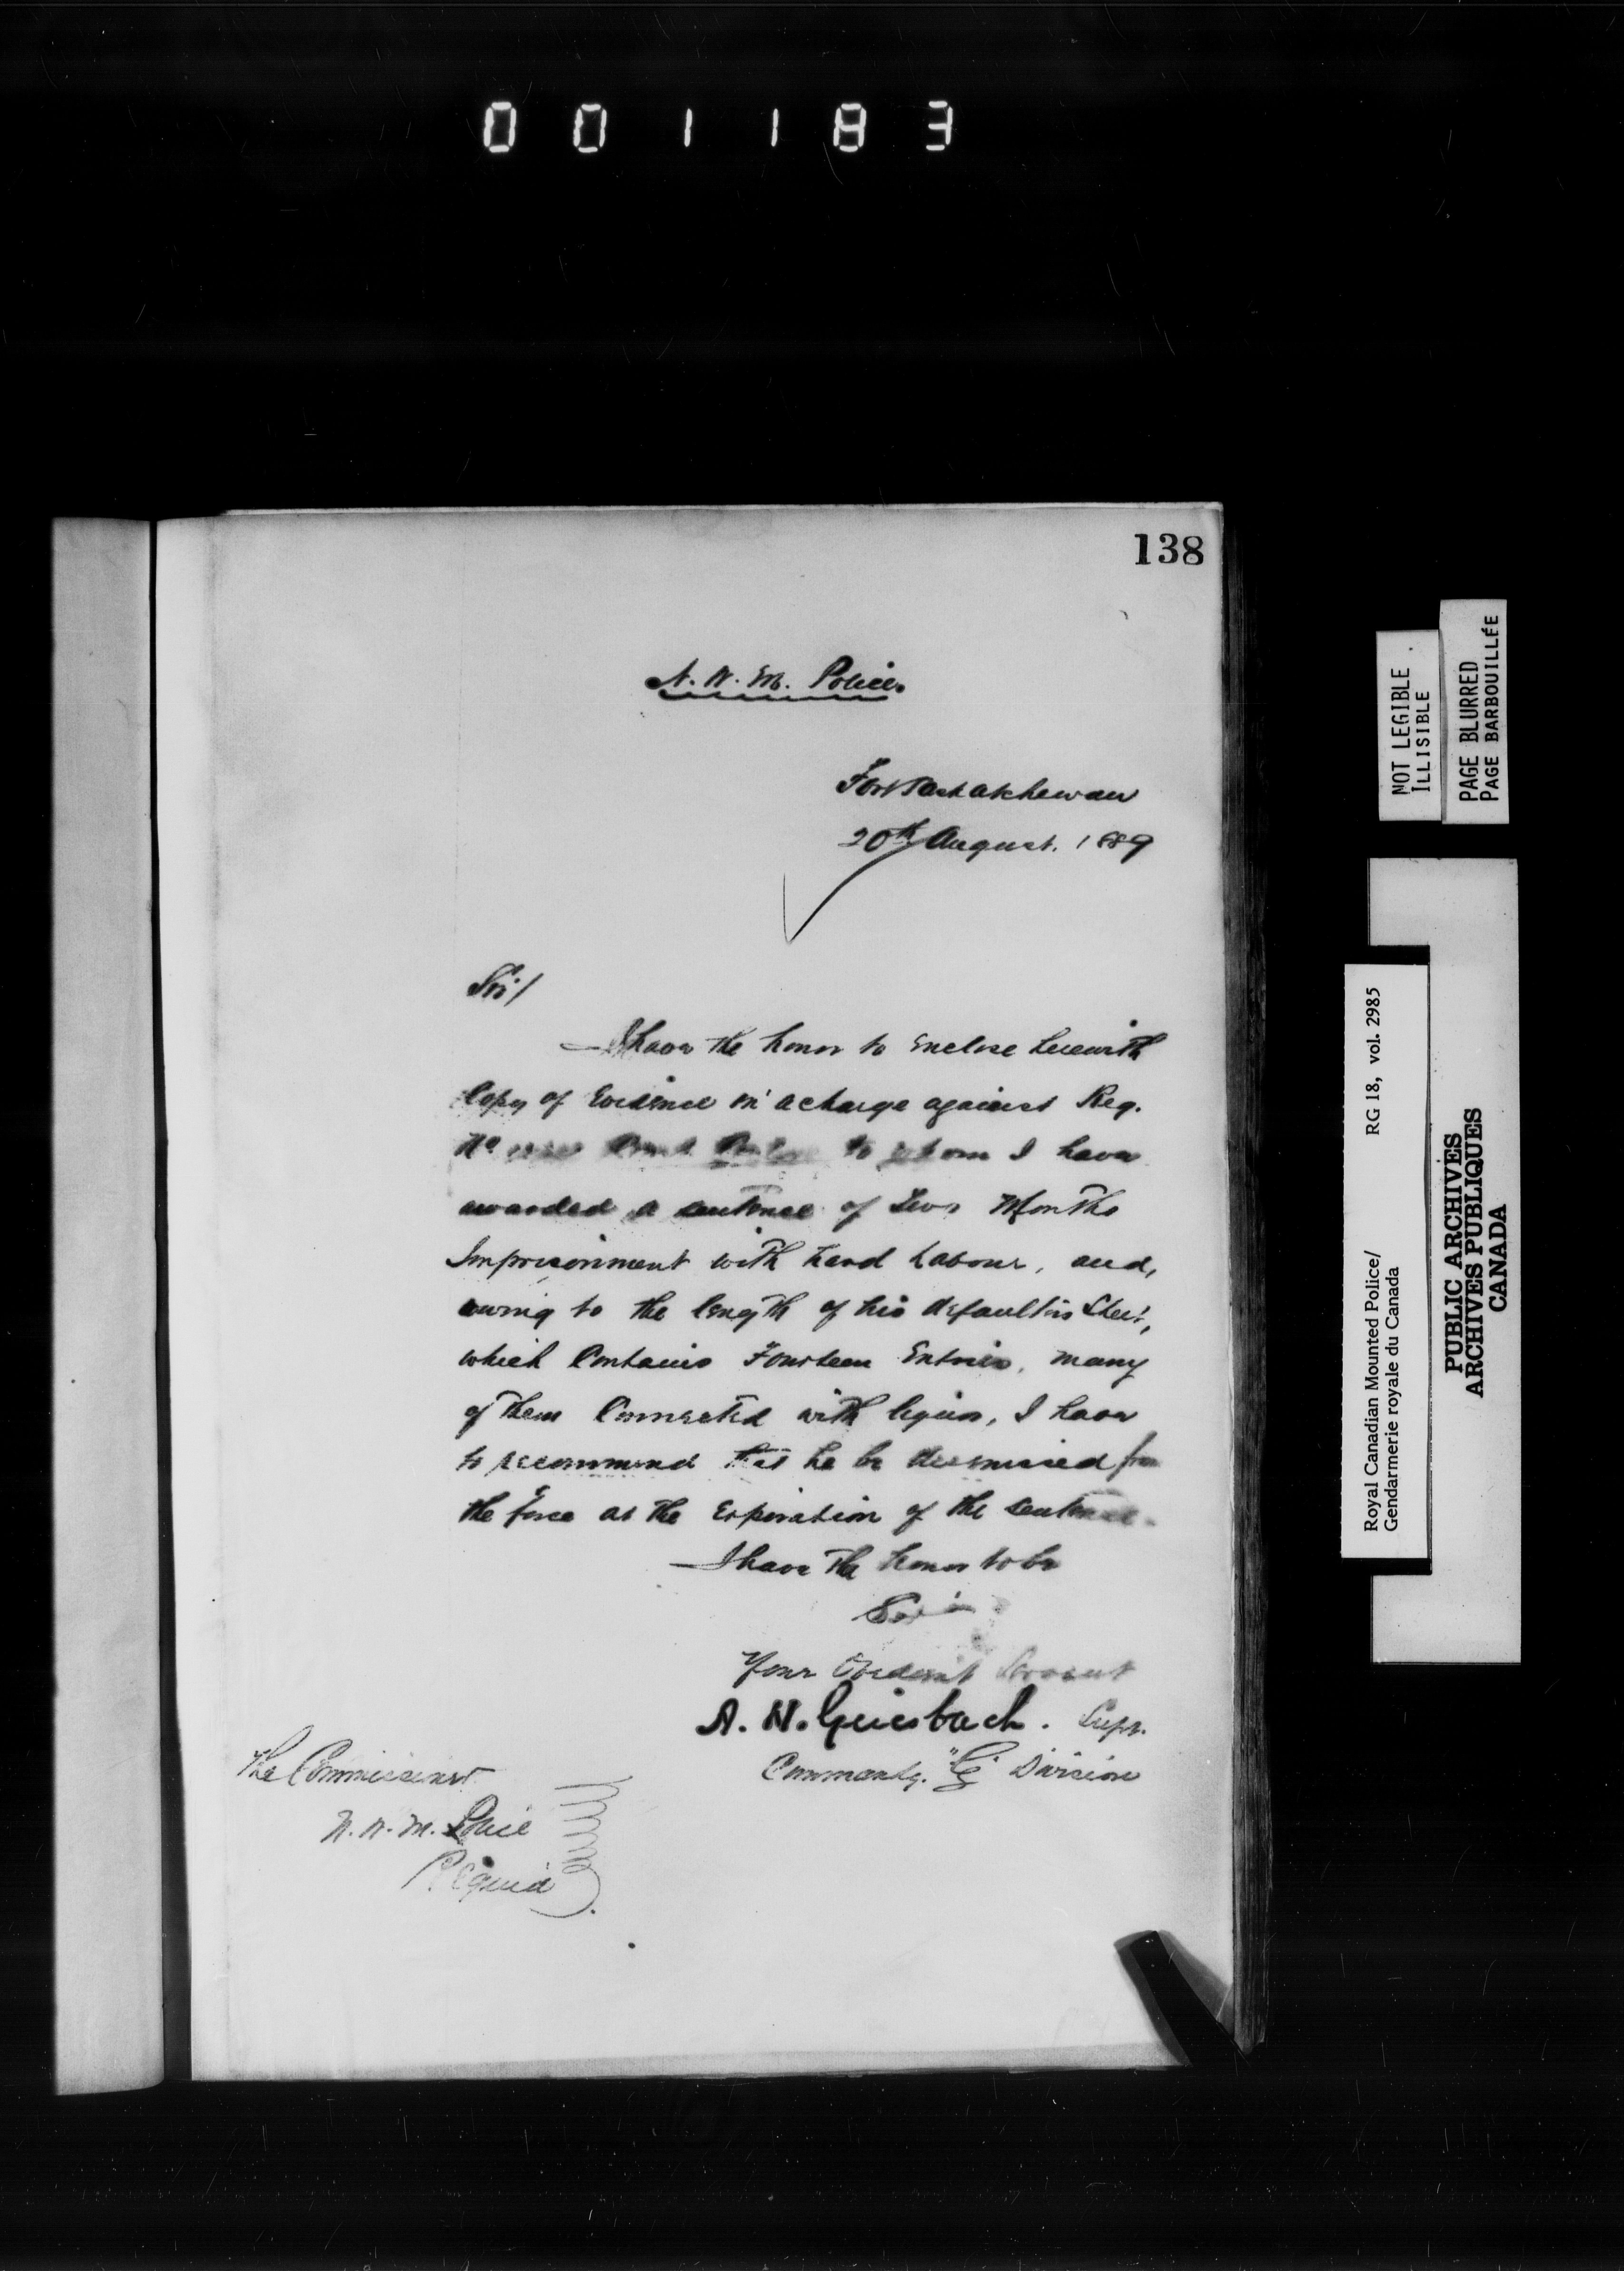 001183
138
N. W. M. Police.
Fort Saskatchewan
20th August. 1889
Sir/
I have the honor to enclose herewith
Copy of Evidence in a charge against Reg.
No to whom I have
awarded a sentence of Two Months
Imprisonment with hard labour, and,
owing to the length of his defaulters Sheet,
which Contains Fourteen Entries, many
of them Connected with liquor, I have
to recommend that he be dismissed from
the force at the Expiration of the sentence.
I have the honor to be
Sir
Your Obedient Servant
A. H. Griesbach. Supt.
Commandg. "G" Division
The Commissioner
N. W. M. Police
Regina
NOT LEGIBLE
ILLISIBLE
PAGE BLURRED
PAGE BARBOUILLÉE
Royal Canadian Mounted Police/ RG 18, vol. 2985
Gendarmerie royale du Canada
PUBLIC ARCHIVES
ARCHIVES PUBLIQUES
CANADA